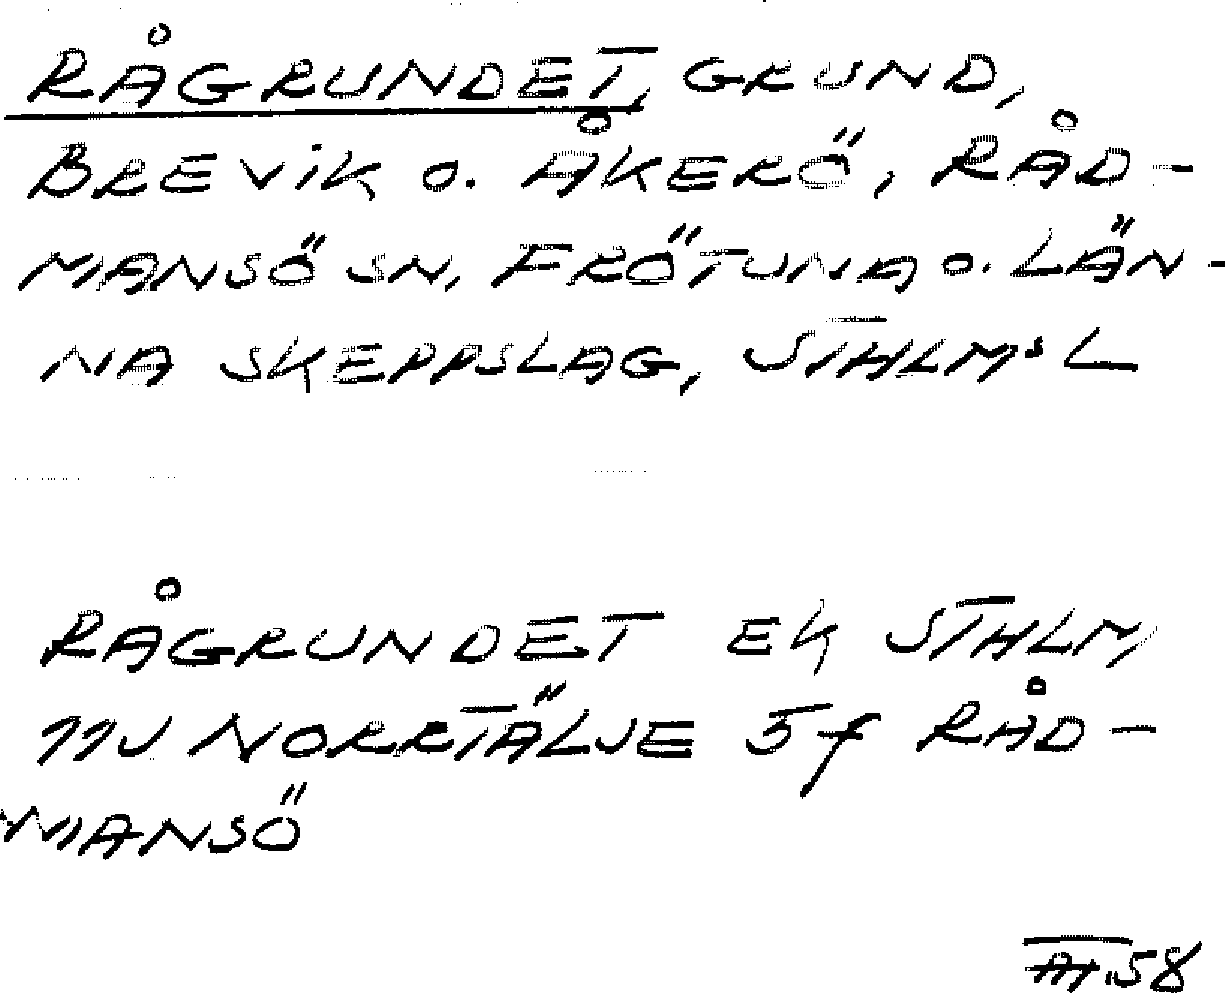 RÅGRUNDET, GRUND,
BREVIK o. ÅKERÖ, RÅD-
MANSÖ SN, FRÖTUNA o. LÄN-
NA SKEPPSLAG, STHLMS L
RÅGRUNDET EK STHLM,
11J NORRTÄLJE 5f RÅD-
MANSÖ
58